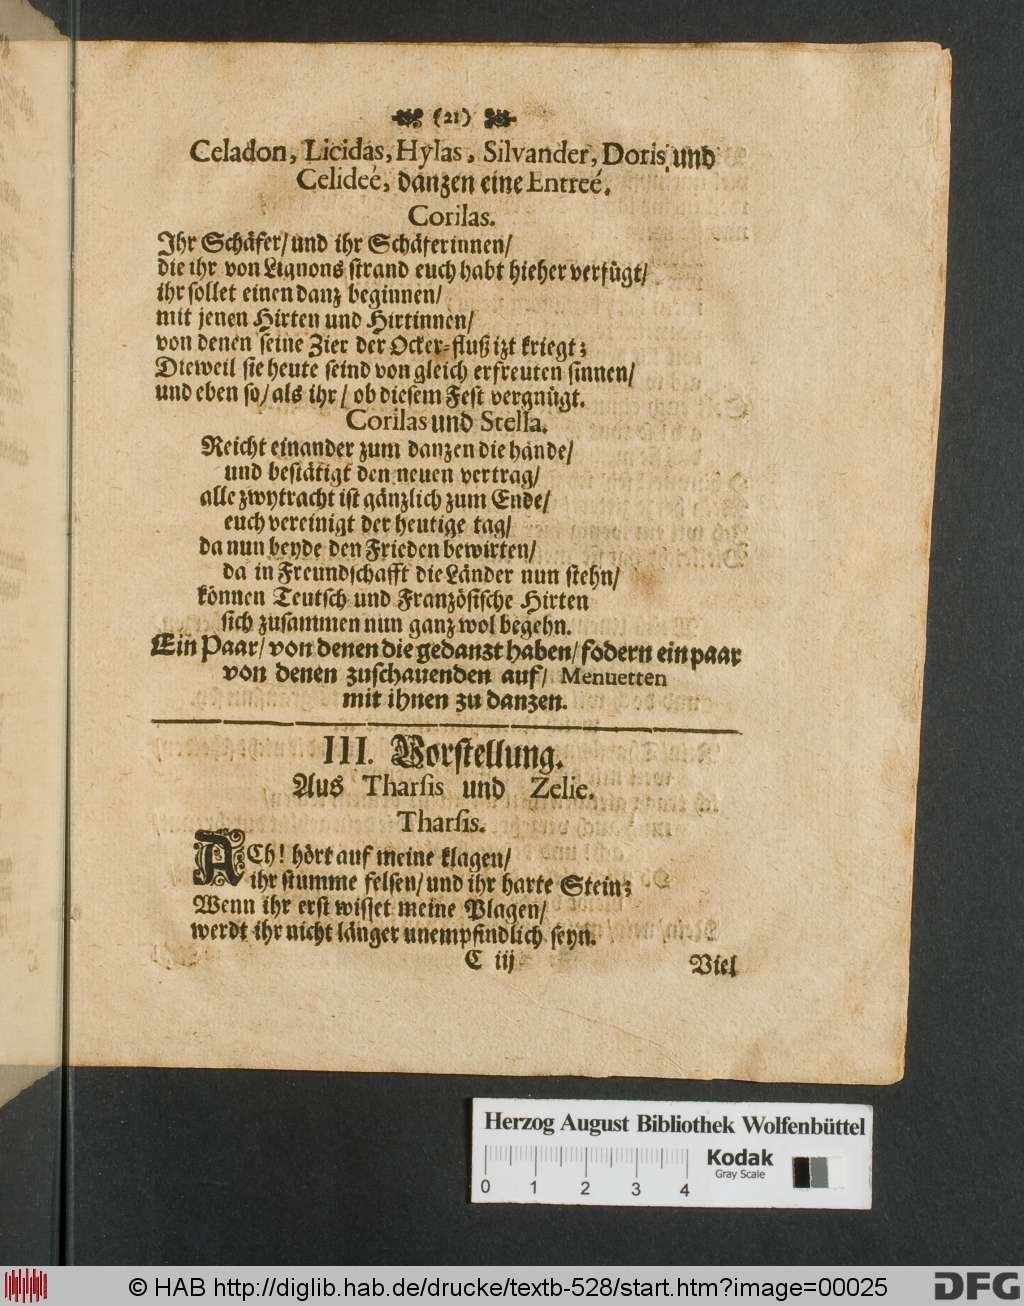 (21)
Celadon, Licidas, Hylas, Silvander, Doris und
Celideé, danzen eine Entreé.
Corilas.
Ihr Schäfer/ und ihr Schäferinnen/
die ihr von Lignons strand euch habt hieher verfügt/
ihr sollet einen danz beginnen/
mit jenen Hirten und Hirtinnen/
von denen seine Zier der Ocker-fluß izt kriegt;
Dieweil sie heute seind von gleich erfreuten sinnen/
und eben so/ als ihr/ ob diesem Fest vergnügt.
Corilas und Stella.
Reicht einander zum danzen die hände/
und bestätigt den neuen vertrag/
alle zwytracht ist gänzlich zum Ende/
euch vereinigt der heutige tag/
da nun beyde den Frieden bewirten/
da in Freundschafft die Länder nun stehn/
können Teutsch und Französische Hirten
sich zusammen nun ganz wol begehn.
Ein Paar/ von denen die gedanzt haben/ fodern ein paar
von denen zuschauenden auf/ Menuetten
mit ihnen zu danzen.
III. Vorstellung.
Aus Tharsis und Zelie.
Tharsis.
ACh! hört auf meine klagen/
ihr stumme felsen/ und ihr harte Stein;
Wenn ihr erst wisset meine Plagen/
werdt ihr nicht länger unempfindlich seyn.
C iij
Viel
Herzog August Bibliothek Wolfenbüttel
Kodak
Gray Scale
0 1 2 3 4
© HAB http://diglib.hab.de/drucke/textb-528/start.htm?image=00025
DFG